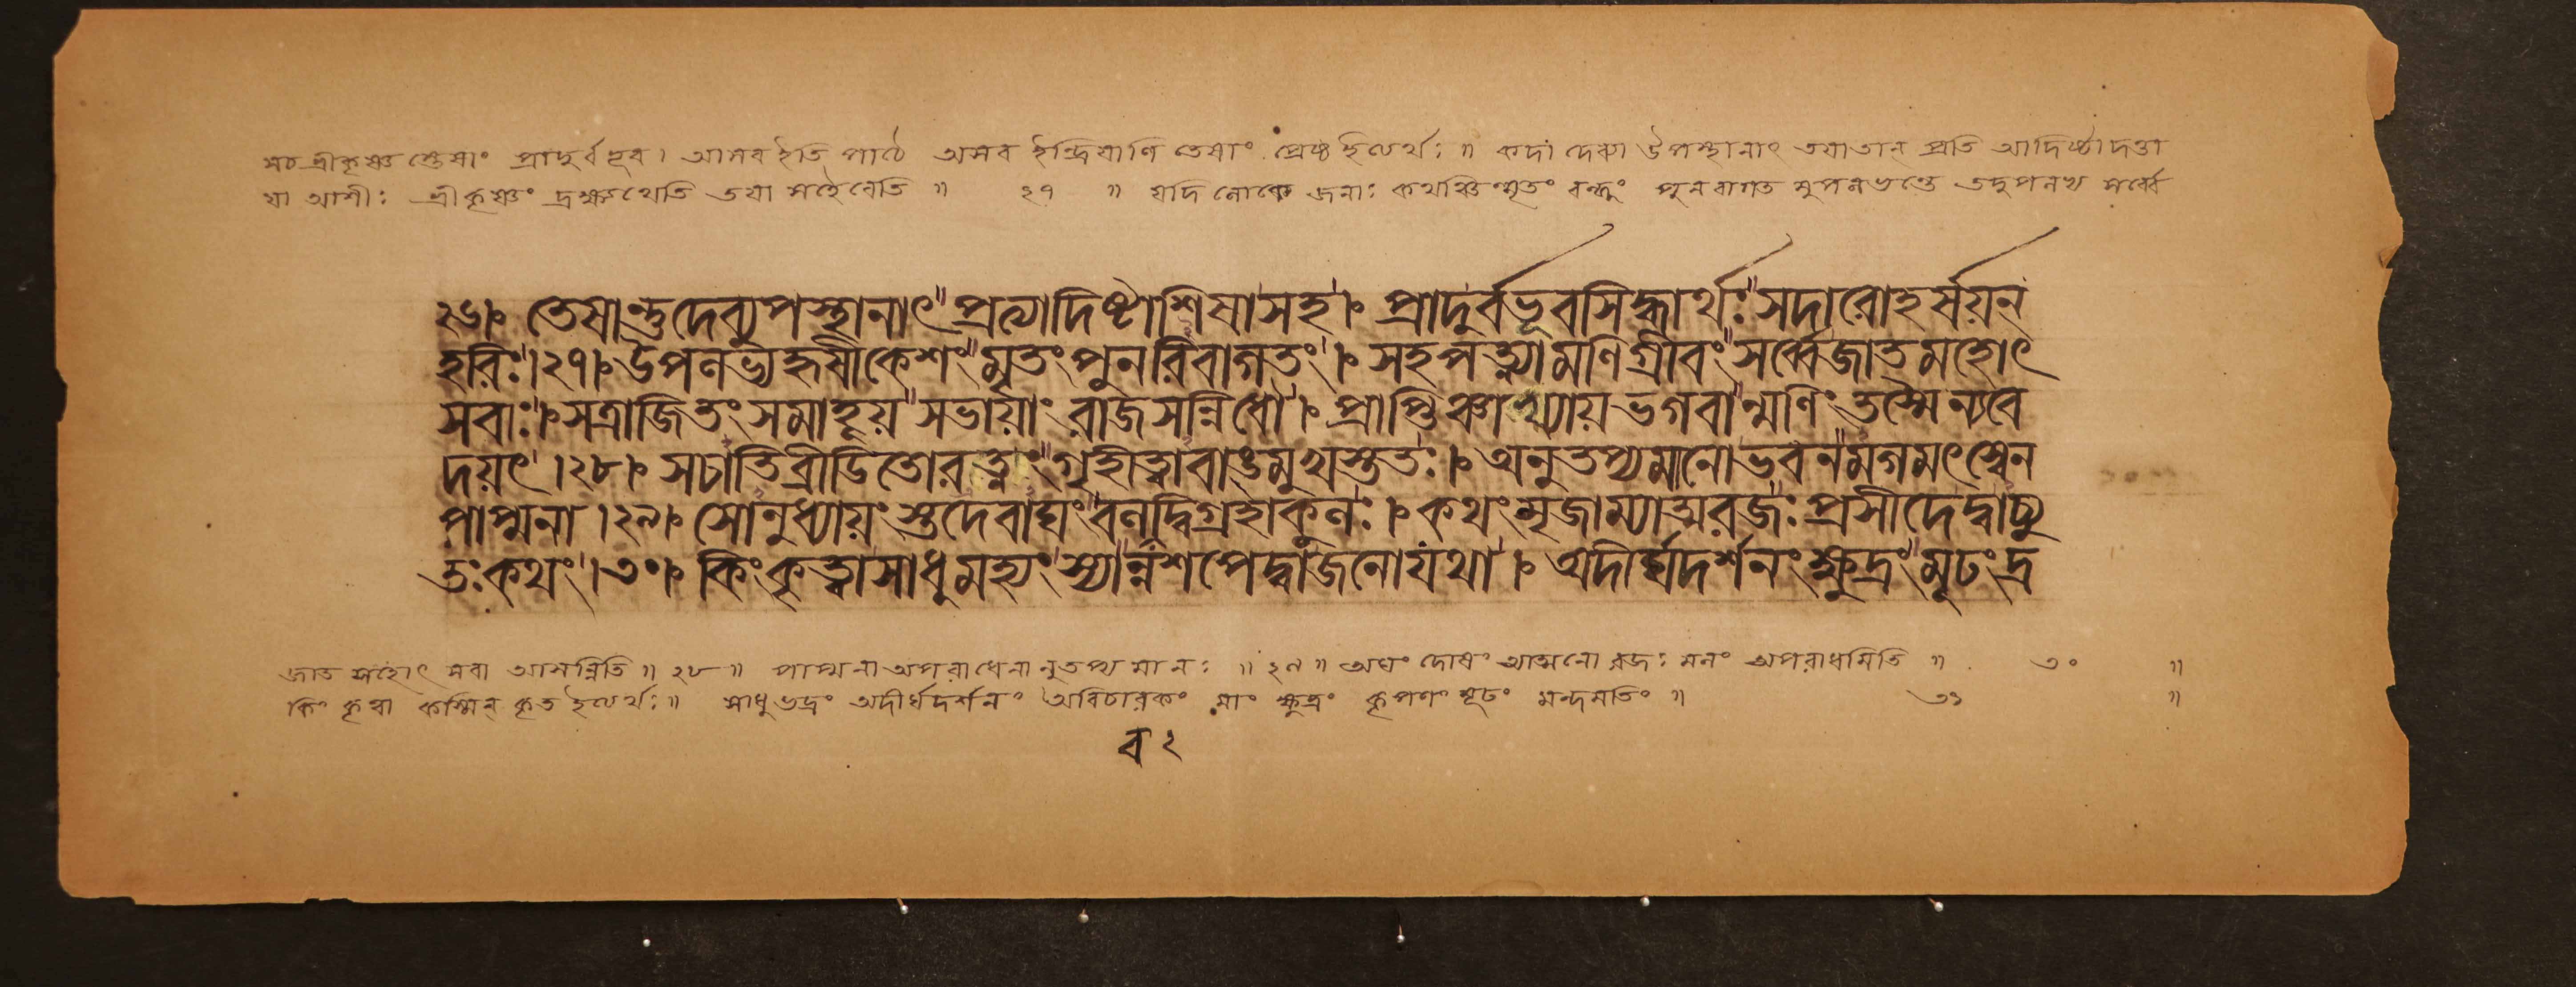 সচ শ্রীকৃষ্ণ স্তেষাং প্রাদুর্বভূব। আসব ইতি পাঠে অসব ইন্দ্রিয়াণি তেষাং প্রেষ্ঠ ইত্যর্থঃ॥ কদা দেব্যা উপস্থানাৎ তয়াতান্ প্রতি আদিষ্টা দত্তা
যা আশীঃ শ্রীকৃষ্ণং দ্রক্ষ্যথেতি তয়া সহৈবেতি॥ ২৭ ॥ যদি লোকে জনাঃ কথঞ্চিন্মৃতং বন্ধুং পুনরাগত মুপলভন্তে তদুপলভ্য সর্ব্বে
২৬। তেষান্তুদেব্যুপস্থানাৎ প্রত্যাদিষ্টাশিষাসহ। প্রাদুর্বভূবসিদ্ধার্থঃ সদারোহর্ষয়ন্
হরিঃ।২৭। উপলভ্যহৃষীকেশং মৃতং পুনরিবাগতং। সহপত্ন্যামণিগ্রীবং সর্ব্বেজাতমহোৎ
সবাঃ। সত্রাজিতং সমাহূয় সভায়াং রাজসন্নিধৌ। প্রাপ্তিঞ্চাখ্যায় ভগবান্মণিং তস্মৈন্যবে
দয়ৎ।২৮। সচাতিব্রীডিতোরত্নং গৃহীত্বাবাঙমুখস্ততঃ। অনুতপ্যমানোভবনমগমৎস্বেন
পাপ্মনা।২৯। সোনুধ্যায়ংস্তদেবাঘং বলদ্বিগ্রহাকুলঃ। কথংমৃজাম্যাত্মরজঃ প্রসীদেদ্বাচ্যু
তঃকথং।৩০। কিংকৃত্বাসাধুমহ্যং স্যান্নশপেদ্বাজনোযথা। অদীর্ঘদর্শনং ক্ষুদ্রং মূঢংদ্র
জাত মহোৎ সবা আসন্নিতি॥ ২৮॥ পাপ্মনা অপরাধেনানুতপ্য মানঃ ॥ ২৯॥ অঘং দোষং আত্মনো রজঃ মলং অপরাধমিতি॥ ৩০ ॥
কিং কৃত্বা কস্মিন্ কৃত ইত্যর্থঃ॥ সাধু ভদ্রং অদীর্ঘদর্শনং অবিচারকং মাং ক্ষুদ্রং কৃপণং মূঢং মন্দমতিং॥ ৩১ ॥
ব ২